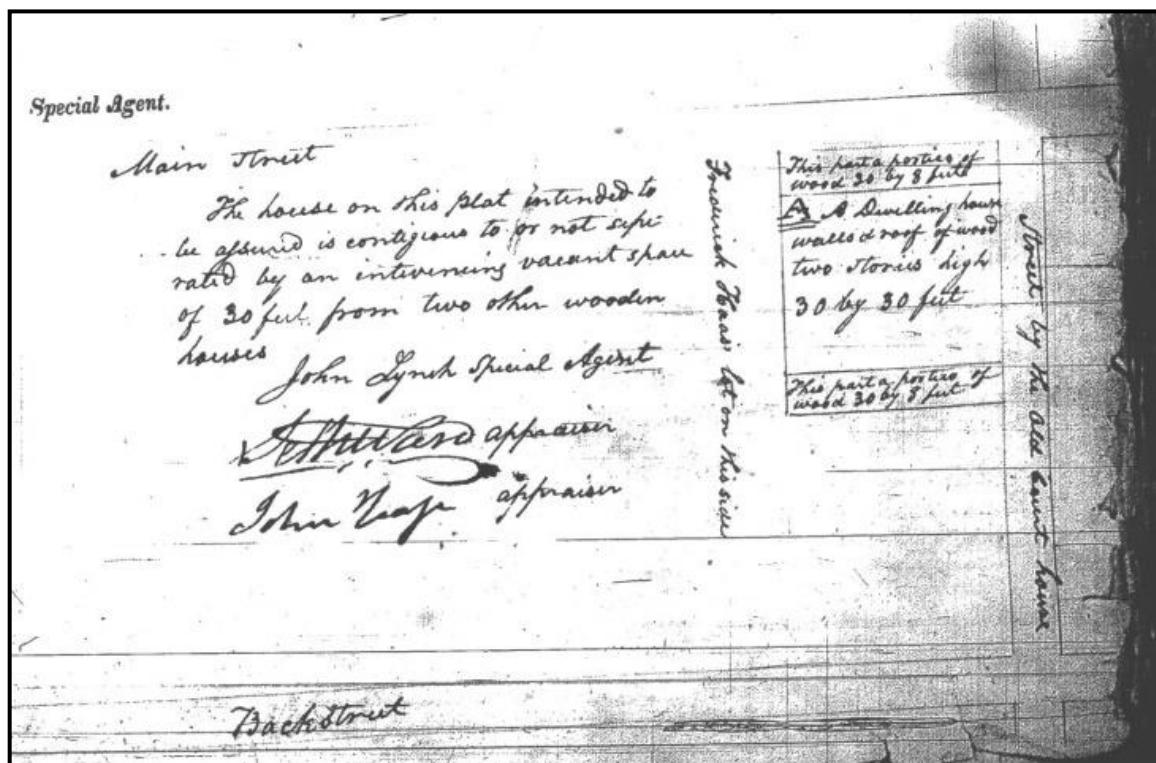 Special Agent.
Main Street
The house on this plat intended to
be assured is contigious to or not sepe-
rated by an intervening vacant space
of 30 feet from two other wooden
houses
John Lynch Special Agent
appraiser
John appraiser
Frederick Haas' lot on this side
This part a portico of
wood 30 by 8 feet
A A Dwelling house
walls & roof of wood
two stories high
30 by 30 feet
This part a portico of
wood 30 by 8 feet
Street by the old Court house
Back Street